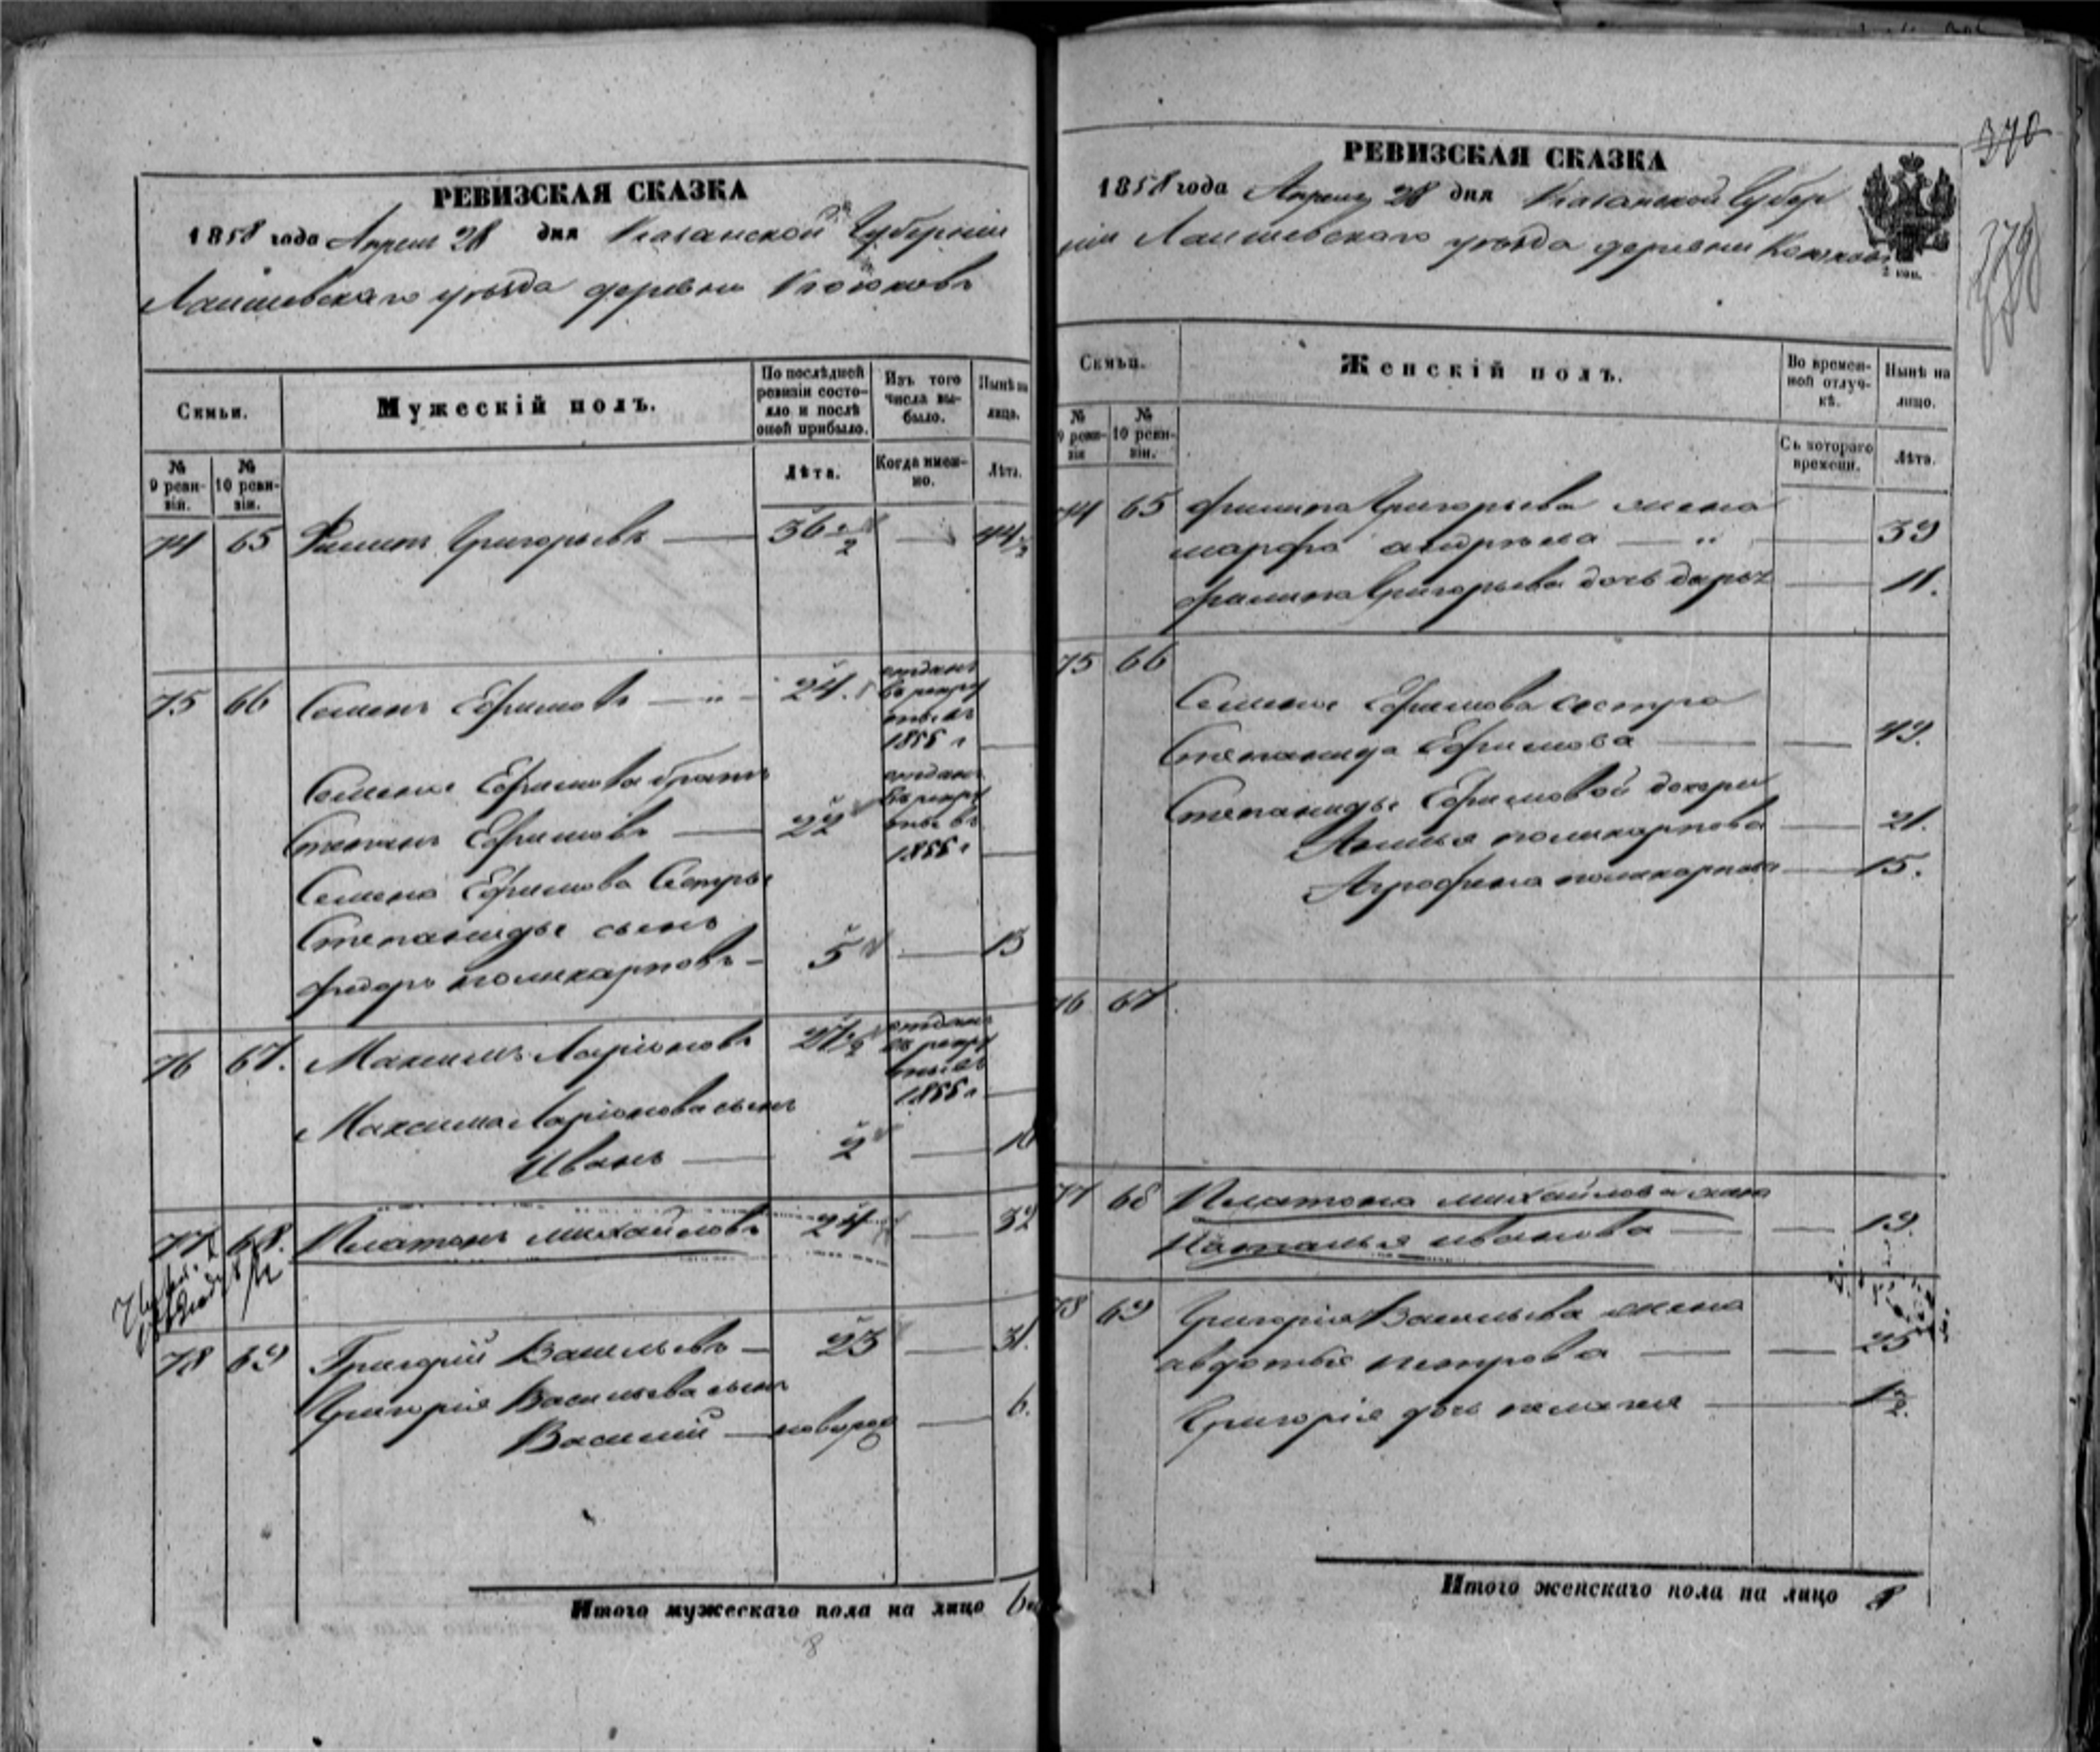 РЕВИЗСКАЯ СКАЗКА
1858 года Апреля 28 дня Казанской Губерніи
Лаишевскаго уѣзда деревни
Семьи.
Мужескій полъ.
По послѣдней ревизіи состояло и послѣ оной прибыло.
Изъ того числа выбыло.
Нынѣ на лицо.
№ 9 ревизіи.
№ 10 ревизіи.
Лѣта.
Когда именно.
Лѣта.
74 65 Филипъ Григорьевъ — 36 1/2 — 44 1/2
75 66 Семенъ Ефимовъ — " — 24. отданъ
въ рекру
ты въ
1855 г —
Семена Ефимова братъ отданъ
Степанъ Ефимовъ — 22 въ рекру
ты въ
1855 г —
Семена Ефимова Сестры
Степаниды сынъ
Федоръ поликарповъ — 5 — 13
76 67. Максимъ Ларіоновъ 27 1/2 отданъ
въ рекру
ты въ
1855 г —
Максима Ларіонова сынъ
Иванъ — 2 — 10
77 68. Платонъ михайловъ 24 — 32
78 69 Григорій Васильевъ — 23 — 31.
Григорія Васильева сынъ
Василий — новорож — 6.
Итого мужескаго пола на лицо 6
8
РЕВИЗСКАЯ СКАЗКА
1858 года Апреля 28 дня Казанской Губер
ніи Лаишевскаго уѣзда деревни
370
Семьи.
Женскій полъ.
Во временной отлучкѣ.
Нынѣ на лицо.
№ 9 ревизіи
№ 10 ревизіи.
Съ котораго времени.
Лѣта.
74 65 Филипа Григорьева жена
марфа андреева — " — 39
Филипа Григорьева дочь дарья — 11.
75 66
Семена Ефимова сестра
Степанида Ефимова — — 49.
Степаниды Ефимовой дочери
поликарпова — 21.
Аграфена поликарпова — 15.
76 67
77 68 Платона михайлова жена
Наталья иванова — — 19.
78 69 Григорія Васильева жена
авдотья петрова — — 25
Григорія дочь пелагея — 1/2.
Итого женскаго пола на лицо 8